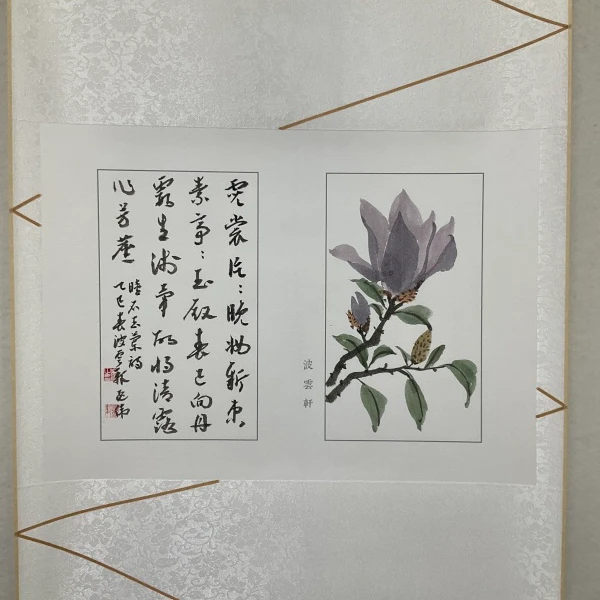 波雲軒
霓裳片片晚妝新束
素亭亭玉殿春已向丹
霞生淺暈故將清露
作芳塵
睦石玉蘭詩
乙巳春波雲軒